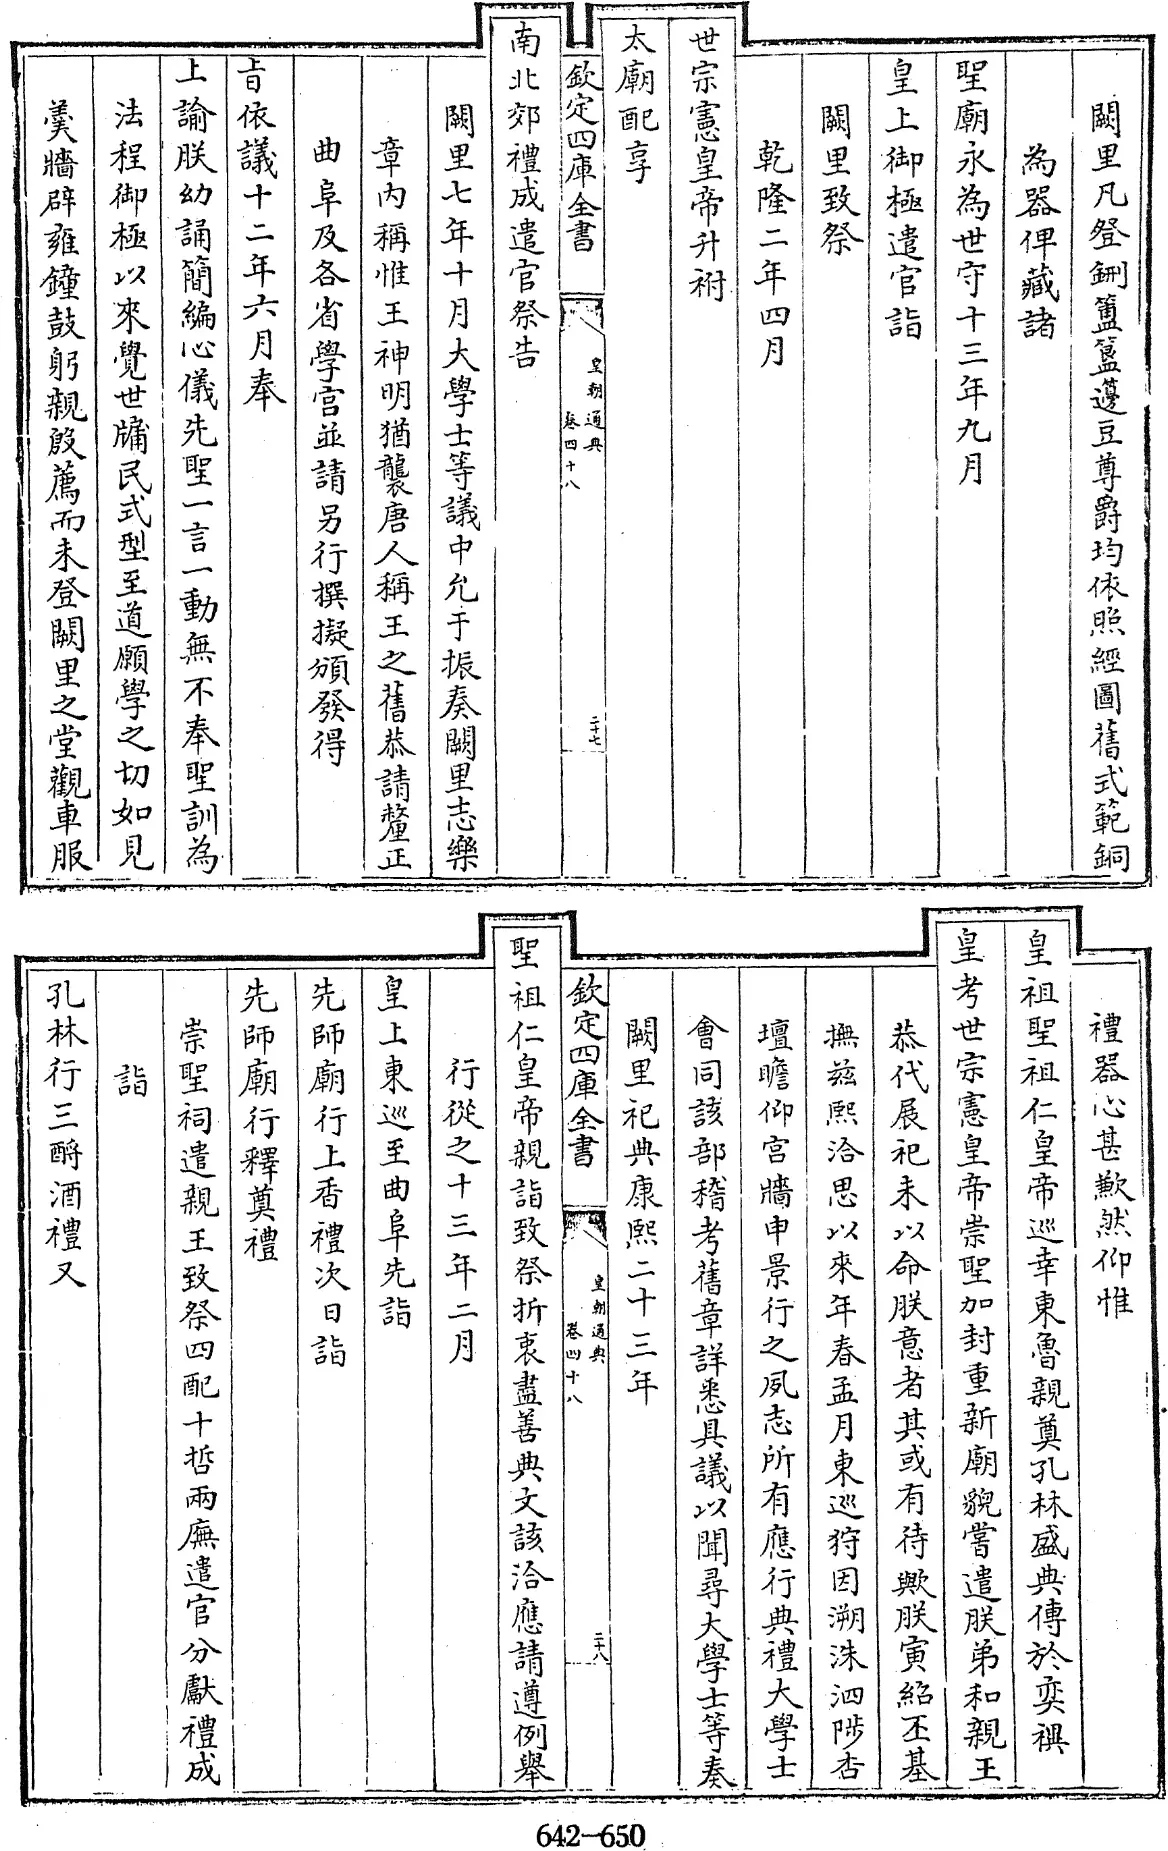 闕里凡登鉶簠簋籩豆尊爵均依照經圖舊式範銅
為器俾藏諸
聖廟永為世守十三年九月
皇上御極遣官詣
闕里致祭
乾隆二年四月
世宗憲皇帝升祔
太廟配享
欽定四庫全書
皇朝通典
卷四十八
二十七
南北郊禮成遣官祭告
闕里七年十月大學士等議中允于振奏闕里志樂
章内稱惟王神明猶襲唐人稱王之舊恭請釐正
曲阜及各省學宫並請另行撰擬頒發得
㫖依議十二年六月奉
上諭朕幼誦簡編心儀先聖一言一動無不奉聖訓為
法程御極以來覺世牖民式型至道願學之切如見
羮牆辟雍鐘鼓躬親殷薦而未登闕里之堂觀車服
禮器心甚歉然仰惟
皇祖聖祖仁皇帝巡幸東魯親奠孔林盛典傳於奕禩
皇考世宗憲皇帝崇聖加封重新廟貌嘗遣朕弟和親王
恭代展祀未以命朕意者其或有待歟朕寅紹丕基
撫兹熙洽思以來年春孟月東巡狩因溯洙泗陟杏
壇瞻仰宫牆申景行之夙志所有應行典禮大學士
會同該部稽考舊章詳悉具議以聞尋大學士等奏
闕里祀典康熙二十三年
欽定四庫全書
皇朝通典
卷四十八
二十八
聖祖仁皇帝親詣致祭折衷盡善典文該洽應請遵例舉
行從之十三年二月
皇上東巡至曲阜先詣
先師廟行上香禮次日詣
先師廟行釋奠禮
崇聖祠遣親王致祭四配十哲兩廡遣官分獻禮成
詣
孔林行三酹酒禮又
642-650